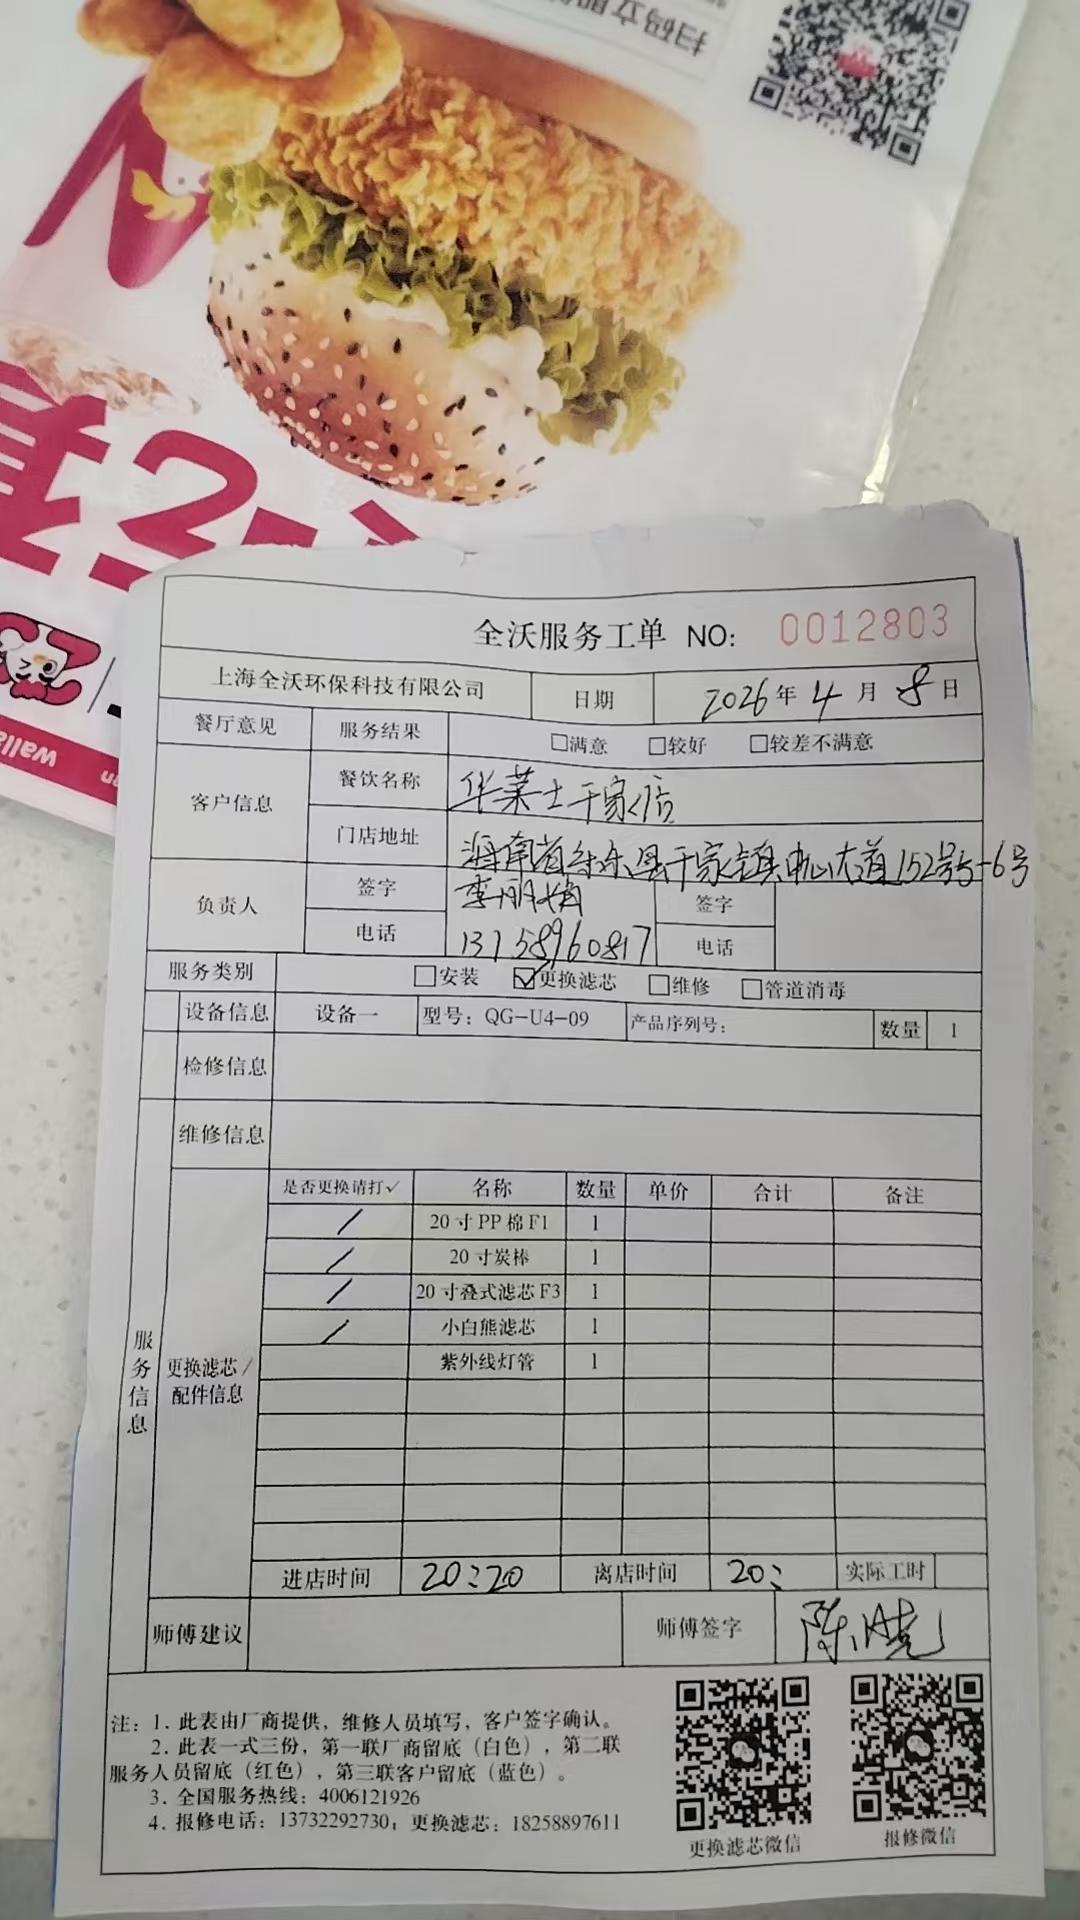 扫码立即
walla
全沃服务工单 NO: 0012803
上海全沃环保科技有限公司 日期 2026年4月8日
餐厅意见 服务结果 □满意 □较好 □较差不满意
客户信息 餐饮名称 华莱士千家店
门店地址 海南省乐东县千家镇中心大道152号5-6号
负责人 签字 李丽娟 签字
电话 13758960817 电话
服务类别 □安装 ☑更换滤芯 □维修 □管道消毒
设备信息 设备一 型号：QG-U4-09 产品序列号： 数量 1
检修信息
维修信息
服务信息
更换滤芯/配件信息
是否更换请打✓ 名称 数量 单价 合计 备注
/ 20寸PP棉F1 1
/ 20寸炭棒 1
/ 20寸叠式滤芯F3 1
/ 小白熊滤芯 1
紫外线灯管 1
进店时间 20:20 离店时间 20: 实际工时
师傅建议 师傅签字 陈晓
注：1. 此表由厂商提供，维修人员填写，客户签字确认。
2. 此表一式三份，第一联厂商留底（白色），第二联
服务人员留底（红色），第三联客户留底（蓝色）。
3. 全国服务热线：4006121926
4. 报修电话：13732292730；更换滤芯：18258897611
更换滤芯微信 报修微信